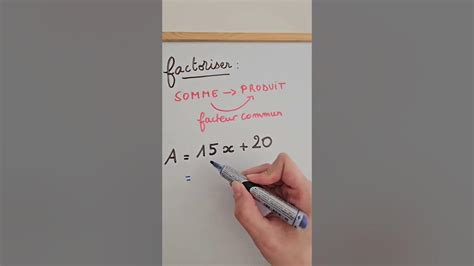 factoriser :
SOMME → PRODUIT
facteur commun
A = 15x + 20
=